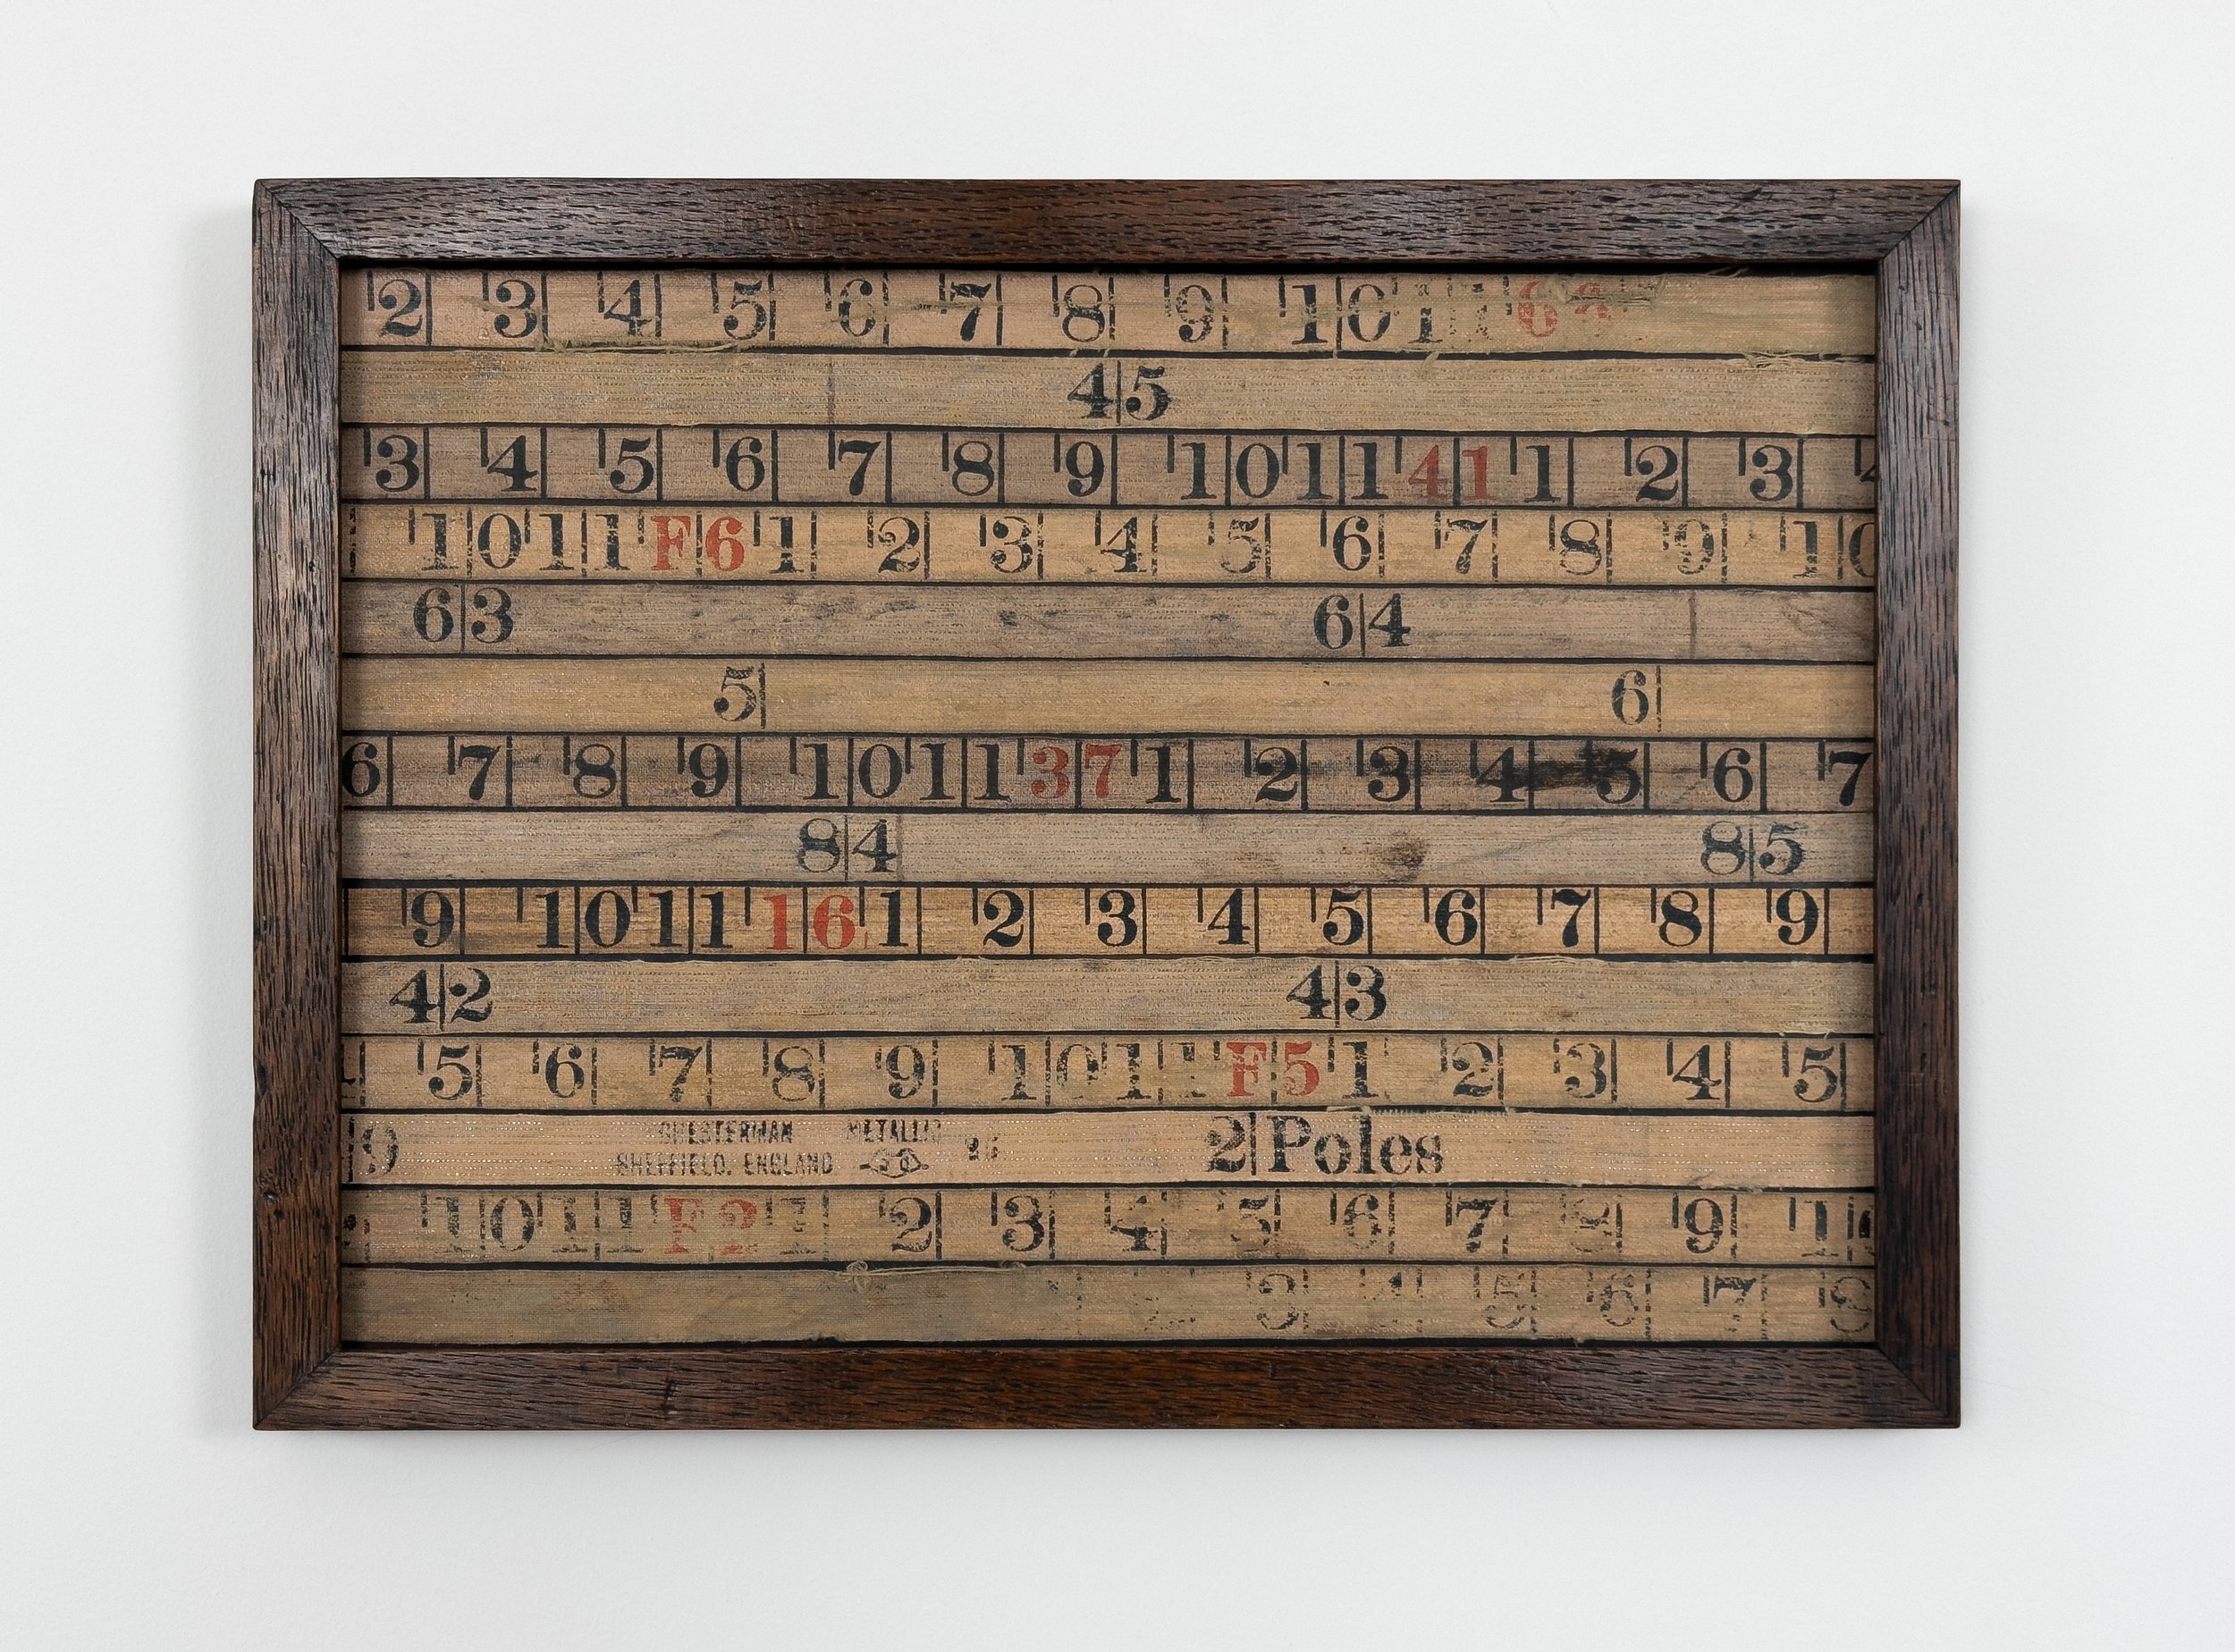 2 3 4 5 6 7 8 9 10 11
45
3 4 5 6 7 8 9 10 11 41 1 2 3 4
10 11 F6 1 2 3 4 5 6 7 8 9 10
63 64
5 6
6 7 8 9 10 11 37 1 2 3 4 5 6 7
84 85
9 10 11 16 1 2 3 4 5 6 7 8 9
42 43
5 6 7 8 9 10 11 F5 1 2 3 4 5
9 CHESTERMAN METALLIC 2 Poles
SHEFFIELD. ENGLAND
10 11 F2 1 2 3 4 5 6 7 8 9 10
3 4 5 6 7 8